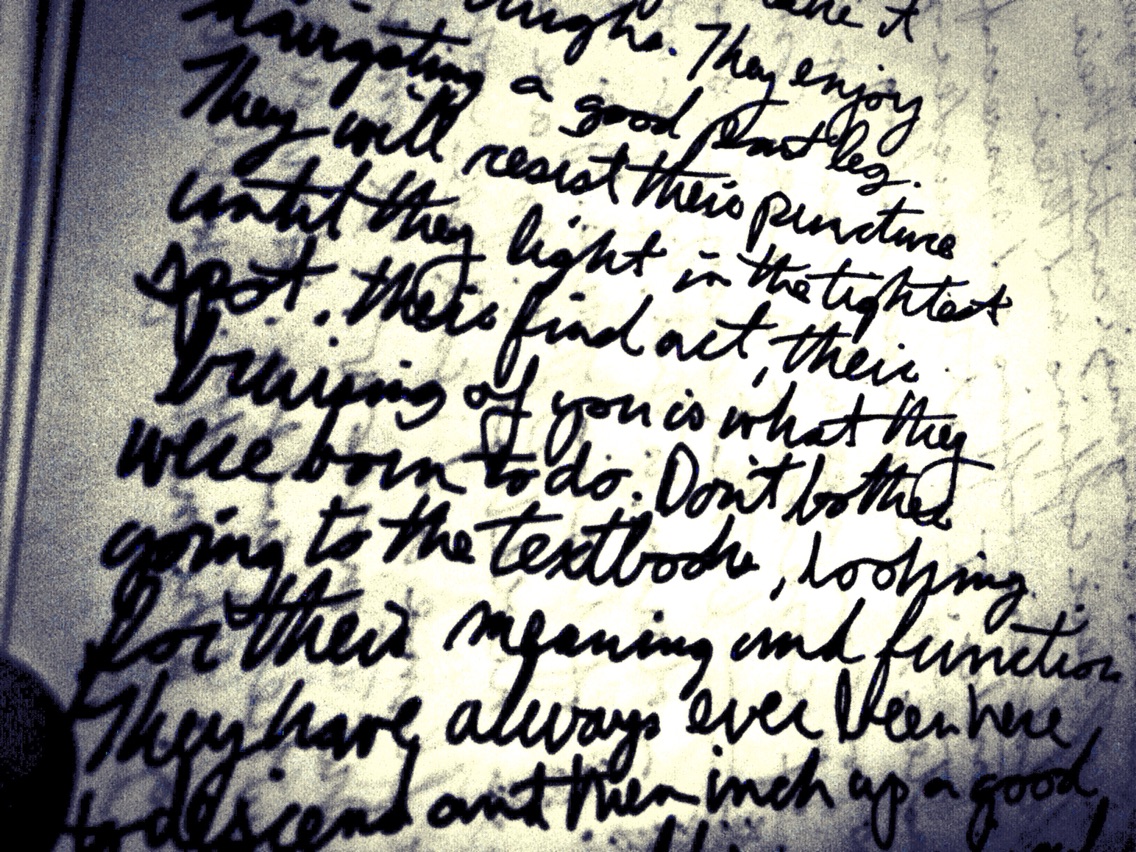 take it
thighs. They enjoy
navigating a good pant leg.
They will resist their puncture
until they light in the tightest
spot. their find act, their
bruising of you is what they
were born to do. Don't bother
going to the textbooks, looking
for their meaning and function
They have always ever been here,
to descend and then inch up a good